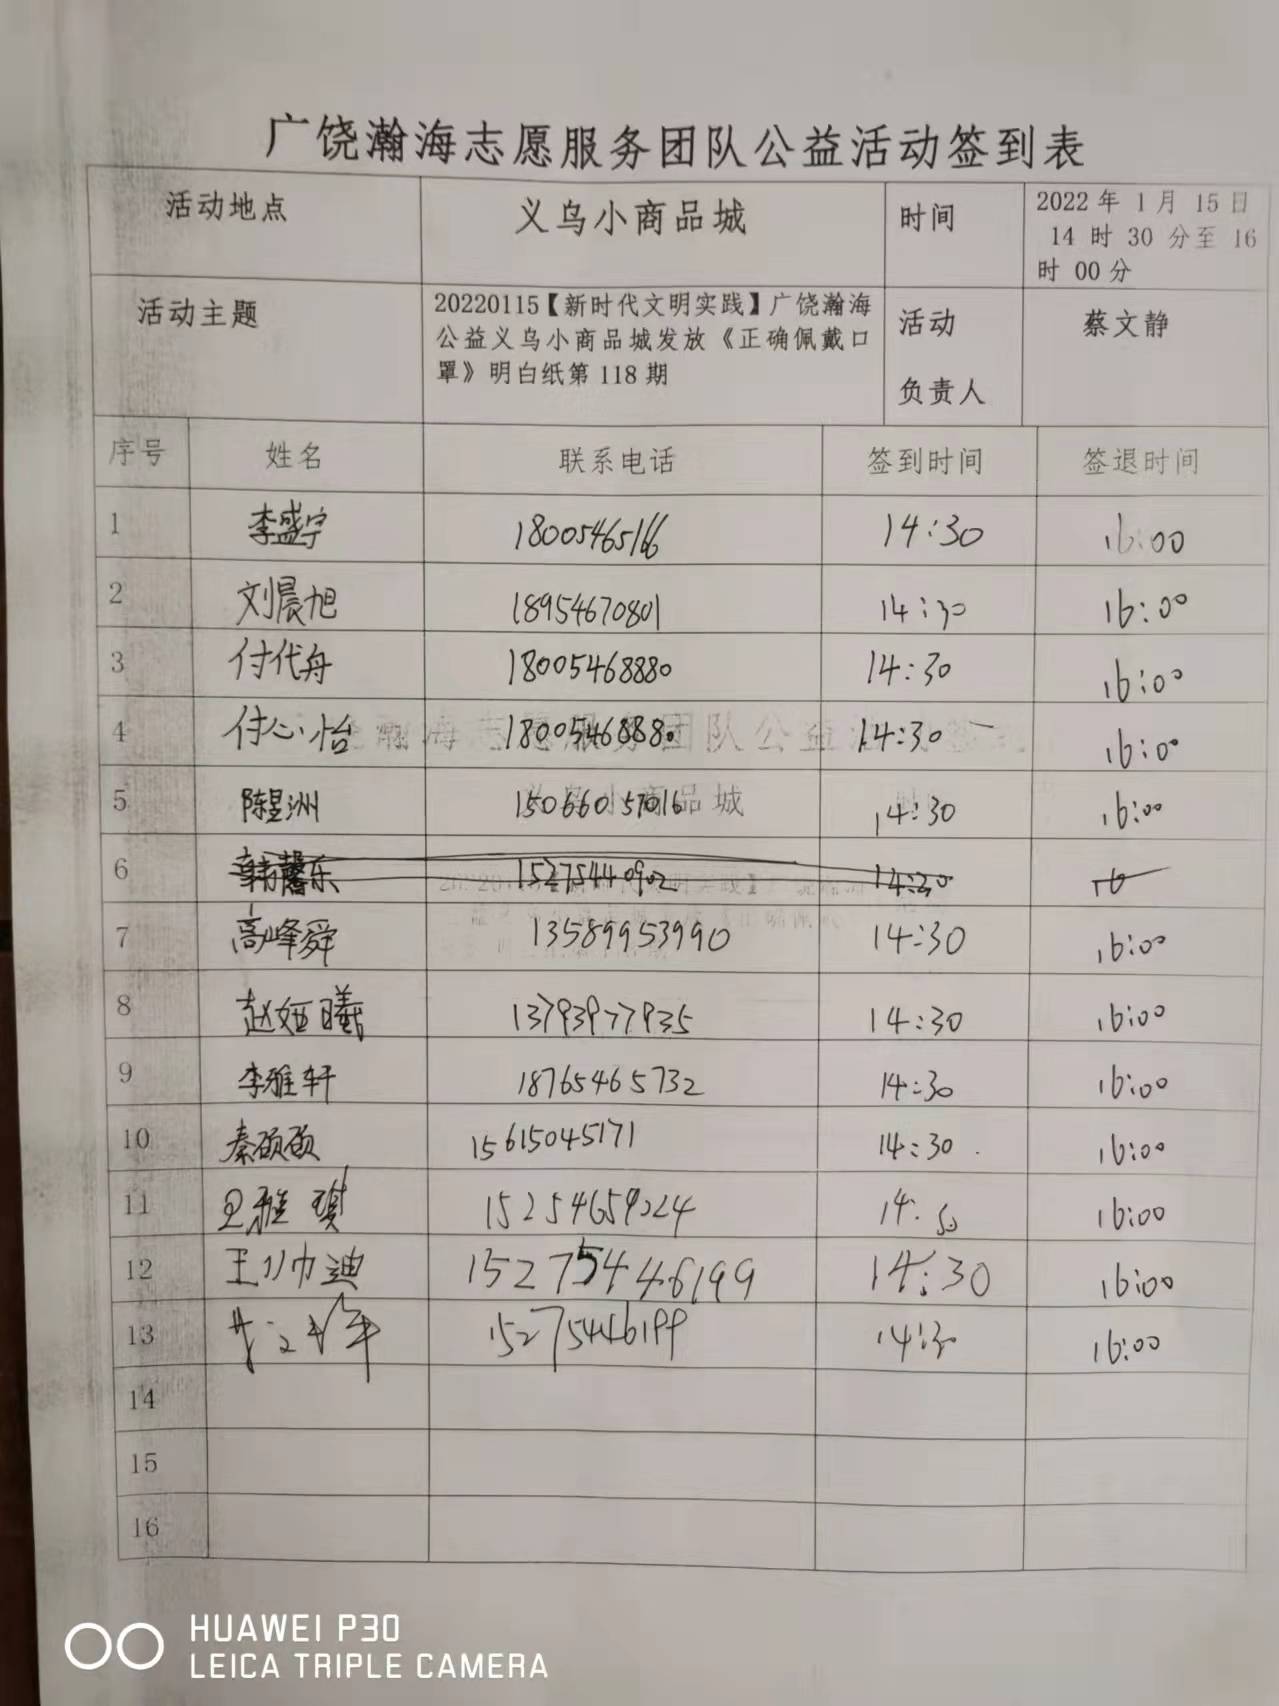 广饶瀚海志愿服务团队公益活动签到表
活动地点 义乌小商品城 时间 2022 年 1 月 15 日
14 时 30 分至 16
时 00 分
活动主题 20220115【新时代文明实践】广饶瀚海
公益义乌小商品城发放《正确佩戴口
罩》明白纸第 118 期
活动
负责人
蔡文静
序号 姓名 联系电话 签到时间 签退时间
1 李盛宇 18005465166 14:30 16:00
2 刘晨旭 18954670801 14:30 16:00
3 付代舟 18005468880 14:30 16:00
4 付心怡 18005468880 14:30 16:00
5 陈星洲 15066057016 14:30 16:00
6 韩馨乐 15275440902 14:30 16
7 高峰舜 13589953990 14:30 16:00
8 赵娅曦 13793977935 14:30 16:00
9 李雅轩 18765465732 14:30 16:00
10 秦硕硕 15615045171 14:30 16:00
11 王雅琪 15254659224 14: 16:00
12 王帅迪 15275446199 14:30 16:00
13 15275446199 14:30 16:00
14
15
16
瀚海志愿服务团队公益
义乌小商品城
HUAWEI P30
LEICA TRIPLE CAMERA